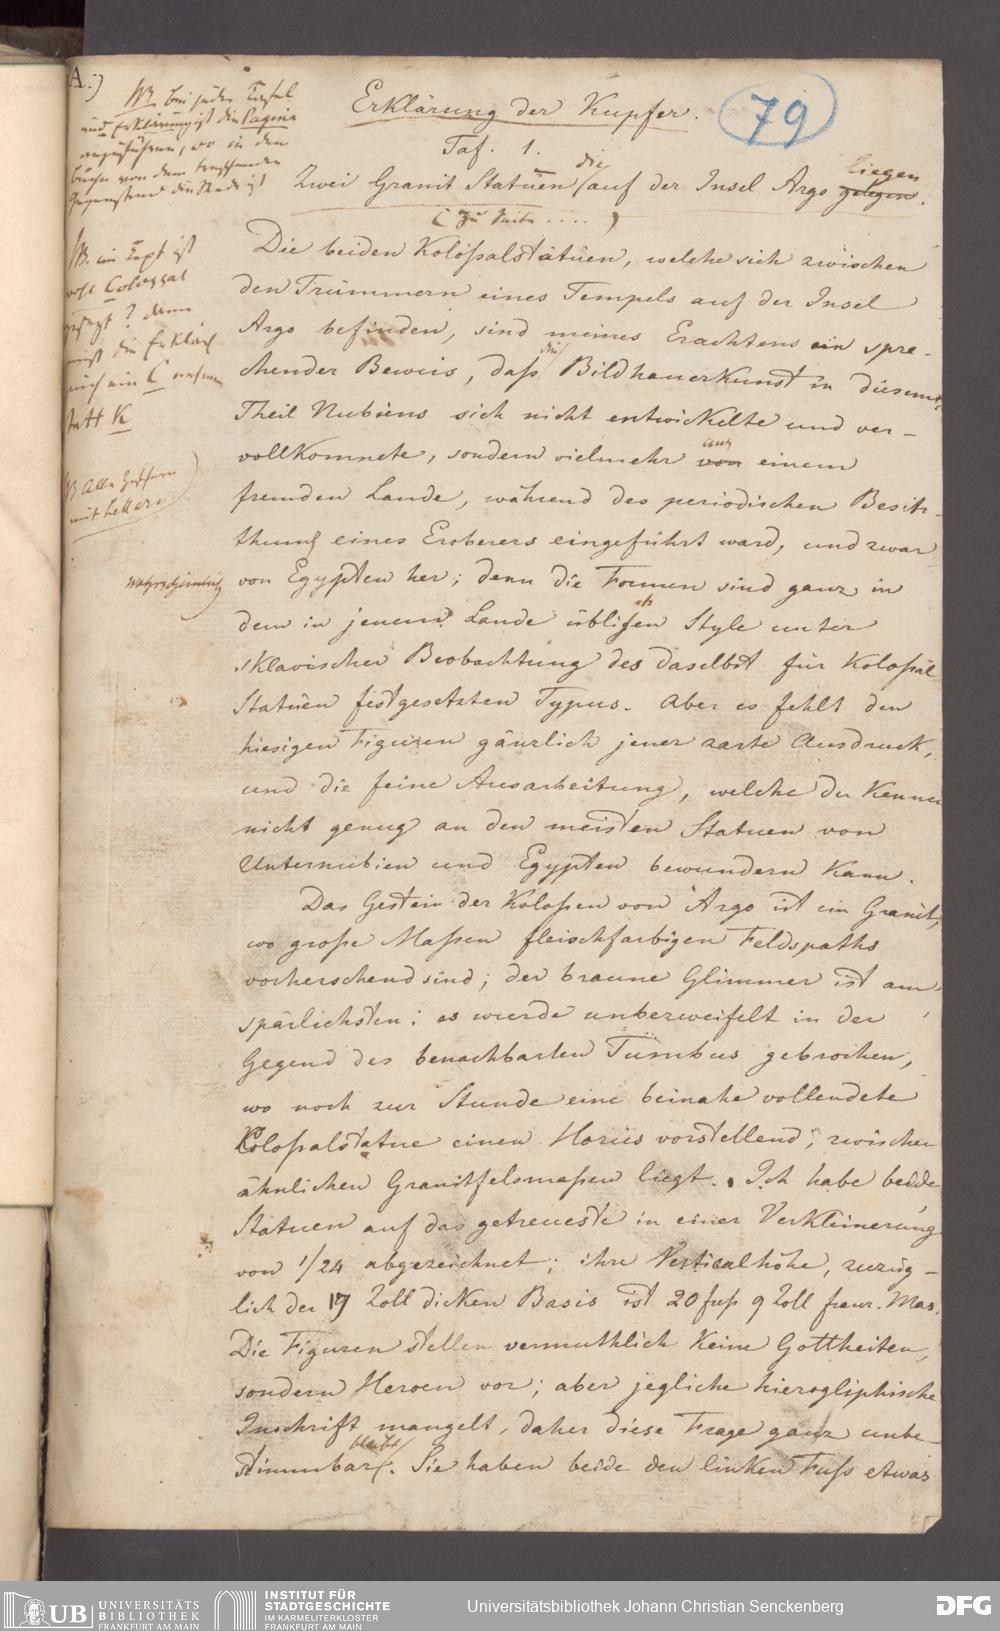 A.)
NB bei jeder Tafel
und Erklärung ist die Pagina
anzuführen, wo in dem
Buche von dem treffenden
Gegenstand die Rede ist
Erklärung der Kupfer.
79
Taf. 1.
die
liegen
Zwei Granit Statuen auf der Insel Argo gelegen.
( zu Seite .... )
NB. im Text ist
wohl Colossal
gesagt? dann
muß die Erklär
auch ein C nehmen
statt K
NB alle Ziffern
mit Lettern
wahrscheinlich
Die beiden Kolossalstatuen, welche sich zwischen
den Trümmern eines Tempels auf der Insel
Argo befinden, sind meines Erachtens ein spre-
die
chender Beweis, daß Bildhauerkunst in diesem
Theil Nubiens sich nicht entwickelte und ver-
aus
vollkomnete, sondern vielmehr von einem
fremden Lande, während des periodischen Besitz-
thums eines Eroberers eingeführt ward, und zwar
von Egypten her; denn die Formen sind ganz in
ch
dem in jenem Lande üblichen Style unter
sklavischer Beobachtung des daselbst für Kolossal
Statuen festgesetzten Typus. Aber es fehlt den
hiesigen Figuren gänzlich jener zarte Ausdruck,
und die feine Ausarbeitung, welche der Kenner
nicht genug an den meisten Statuen von
Unternubien und Egypten bewundern kann.
Das Gestein der Kolossen von Argo ist ein Granit,
wo große Massen fleischfarbigen Feldspaths
vorherschend sind; der braune Glimmer ist am
spärlichsten; es wurde unbezweifelt in der
Gegend des benachbarten Tümbus gebrochen,
wo noch zur Stunde eine beinahe vollendete
Kolossalstatue einen Horus vorstellend, zwischen
ähnlichen Granitfelsmassen liegt. Ich habe beide
Statuen auf das getreueste in einer Verkleinerung
von 1/24 abgezeichnet; ihre Verticalhöhe, zuzüg-
lich der 17 Zoll dicken Basis ist 20 fuß 9 Zoll franz. Mas.
Die Figuren stellen vermuthlich keine Gottheiten,
sondern Heroen vor; aber jegliche hierogliphische
Inschrift mangelt, daher diese Frage ganz unbe
bleibt
stimmbar. Sie haben beide den linken Fuß etwas
UB UNIVERSITÄTS
BIBLIOTHEK
FRANKFURT AM MAIN
INSTITUT FÜR
STADTGESCHICHTE
IM KARMELITERKLOSTER
FRANKFURT AM MAIN
Universitätsbibliothek Johann Christian Senckenberg
DFG